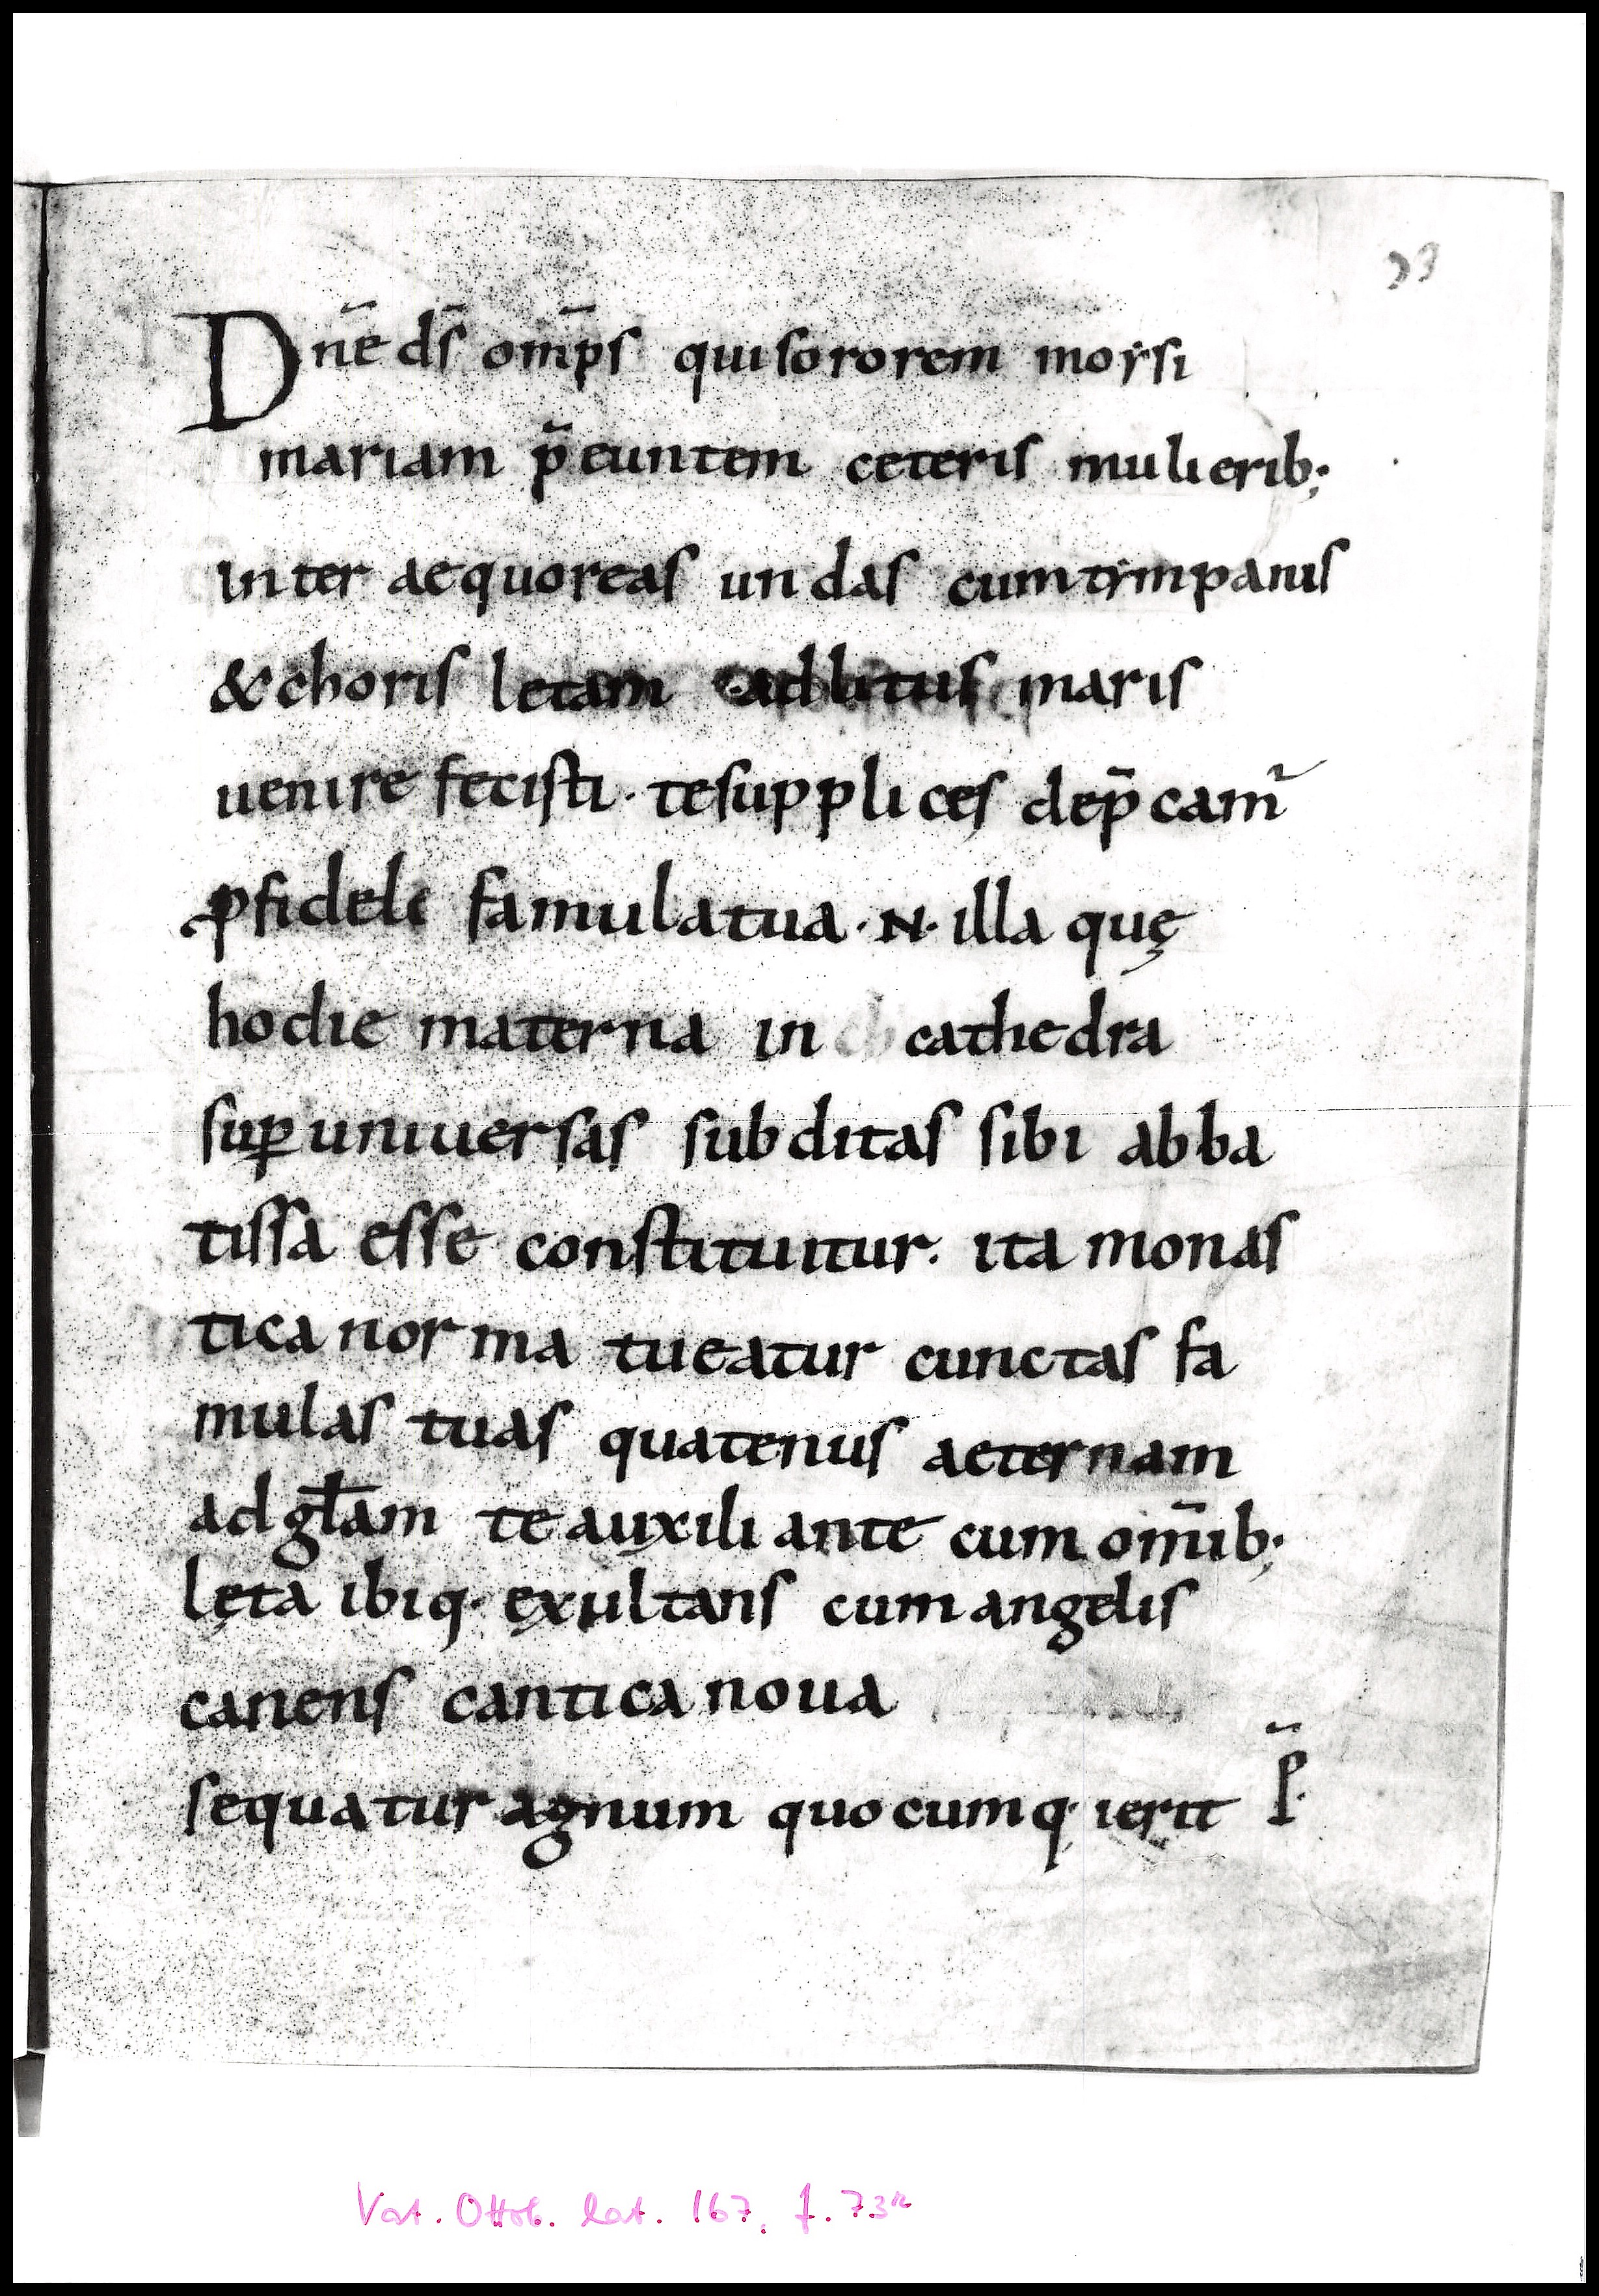 73
Dn̄e ds̄ om̄ps qui sororem moẏsi
mariam p̄euntem ceteris mulierib;
inter aequoreas undas cum tẏmpanis
& choris letam ad litus maris
uenire fecisti · te supplicęs dep̄cam̄
ꝓ fideli famula tua · N · illa quę
hodie materna in cathedra
suꝑ uniuersas subditas sibi abba
tissa esse constituitur · ita monas
tica norma tueatur cunctas fa
mulas tuas quatenus aeternam
ad gl̄am te auxiliante cum om̄ib;
lęta ibiq· ęxultans cum angelis
canens cantica noua
sequatur agnum quocumq· ierit P̄·
Vat. Ottob. lat. 167, f. 73r